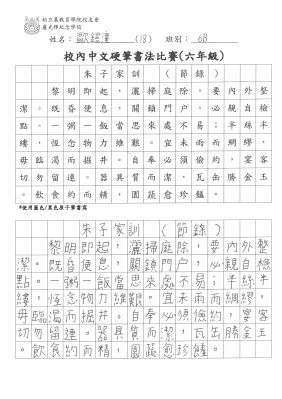 柏立基教育學院校友會
盧光輝紀念學校
姓名： (18) 班別： 6B
校內中文硬筆書法比賽(六年級)
朱子家訓(節錄)
黎明即起，灑掃庭除，要內外整
潔。既昏便息，關鎖門戶，必親自檢
點。一粥一飯，當思來處不易；半絲半
縷，恆念物力維艱。宜未雨而綢繆，
毋臨渴而掘井。自奉必須儉約，宴客
切勿留連。器具質而潔，瓦缶勝金玉
。飲食約而精，園蔬愈珍饈。
*使用藍色/黑色原子筆書寫
朱子家訓(節錄)
黎明即起，灑掃庭除，要內外整
潔。既昏便息，關鎖門戶，必親自檢
點。一粥一飯，當思來處不易；半絲半
縷，恆念物力維艱。宜未雨而綢繆，
毋臨渴而掘井。自奉必須儉約，宴客
切勿留連。器具質而潔，瓦缶勝金玉
。飲食約而精，園蔬愈珍饈。